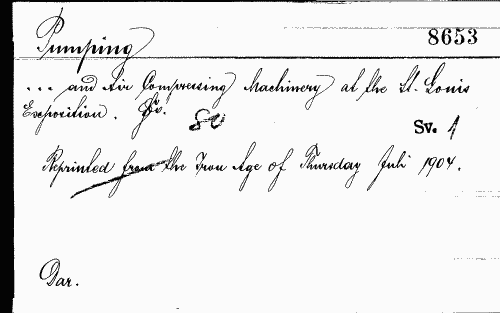 Pumping
8653
... and Air Compressing Machinery at the St. Louis
Exposition.
80
Sv. 1
Reprinted from the Iron Age of Thursday Juli 1904.
Dar.